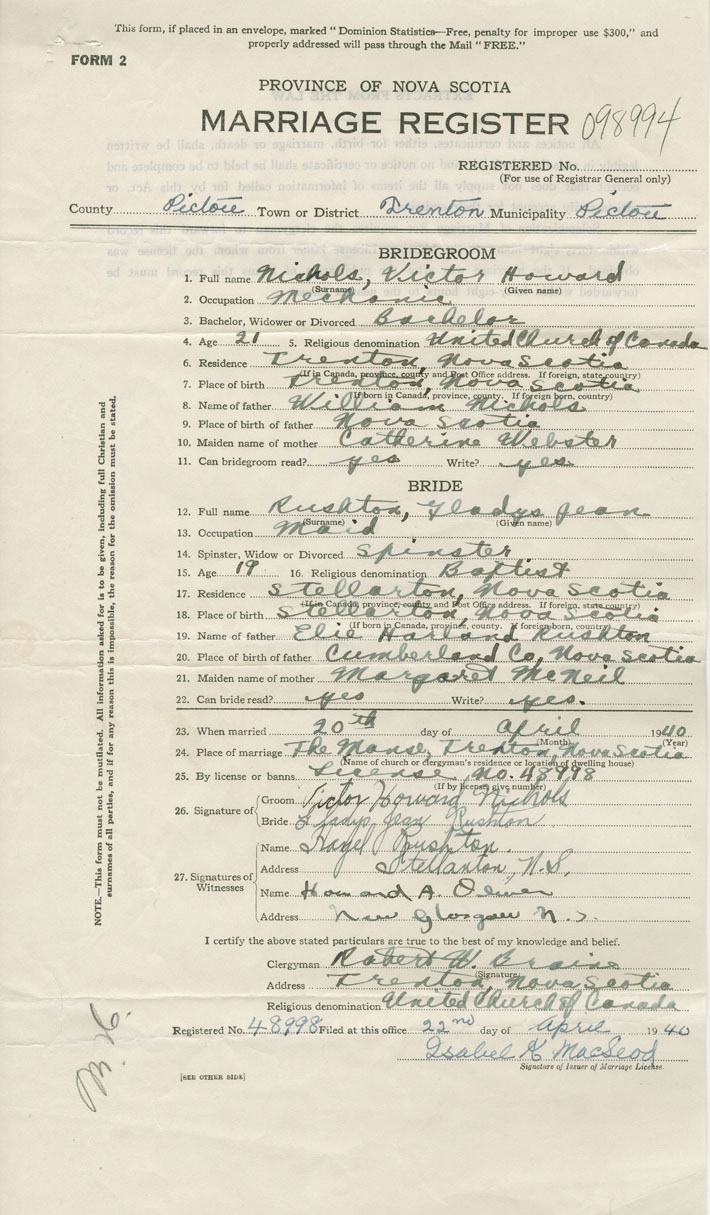 This form, if placed in an envelope, marked "Dominion Statistics—Free, penalty for improper use $300," and
properly addressed will pass through the Mail "FREE."
FORM 2
PROVINCE OF NOVA SCOTIA
MARRIAGE REGISTER 098994
REGISTERED No.
(For use of Registrar General only)
County Pictou Town or District Trenton Municipality Pictou
BRIDEGROOM
1. Full name Nichols, Victor Howard
(Surname) (Given name)
2. Occupation Mechanic
3. Bachelor, Widower or Divorced Bachelor
4. Age 21 5. Religious denomination United Church of Canada
6. Residence Trenton, Nova Scotia
(If in Canada, province, county and Post Office address. If foreign, state country)
7. Place of birth Trenton, Nova Scotia
(If born in Canada, province, county. If foreign born, country)
8. Name of father William Nichols
9. Place of birth of father Nova Scotia
10. Maiden name of mother Catherine Webster
11. Can bridegroom read? yes Write? yes
BRIDE
12. Full name Rushton, Gladys Jean
(Surname) (Given name)
13. Occupation Maid
14. Spinster, Widow or Divorced Spinster
15. Age 19 16. Religious denomination Baptist
17. Residence Stellarton, Nova Scotia
(If in Canada, province, county and Post Office address. If foreign, state country)
18. Place of birth Stellarton, Nova Scotia
(If born in Canada, province, county. If foreign born, country)
19. Name of father Elie Harland Rushton
20. Place of birth of father Cumberland Co, Nova Scotia
21. Maiden name of mother Margaret McNeil
22. Can bride read? yes Write? yes.
23. When married 20th day of April 1940
(Month) (Year)
24. Place of marriage The Manse, Trenton, Nova Scotia
(Name of church or clergyman's residence or location of dwelling house)
25. By license or banns License No. 48998
(If by license, give number)
26. Signature of Groom Victor Howard Nichols
Bride Gladys Jean Rushton
27. Signatures of Witnesses
Name Hazel Rushton.
Address Stellarton, N.S,
Name Howard A. Oliver
Address New Glasgow N.S.
I certify the above stated particulars are true to the best of my knowledge and belief.
Clergyman Robert W. Braine
(Signature)
Address Trenton, Nova Scotia
Religious denomination United Church of Canada
Registered No. 48998 Filed at this office 22nd day of April 1940
Isabel K MacLeod
Signature of Issuer of Marriage License.
[SEE OTHER SIDE]
NOTE.—This form must not be mutilated. All information asked for is to be given, including full Christian and
surnames of all parties, and if for any reason this is impossible, the reason for the omission must be stated.